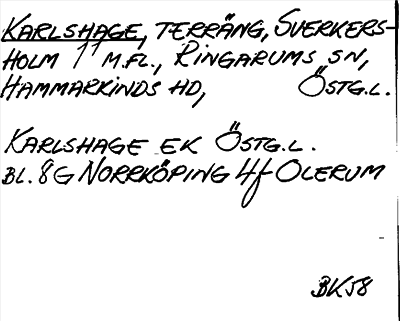 KARLSHAGE, TERRÄNG, SVERKERS-
HOLM 1¹ M.FL., RINGARUMS SN,
HAMMARKINDS HD, ÖSTG.L.
KARLSHAGE EK ÖSTG.L.
BL. 8G NORRKÖPING 4f OLERUM
BK58